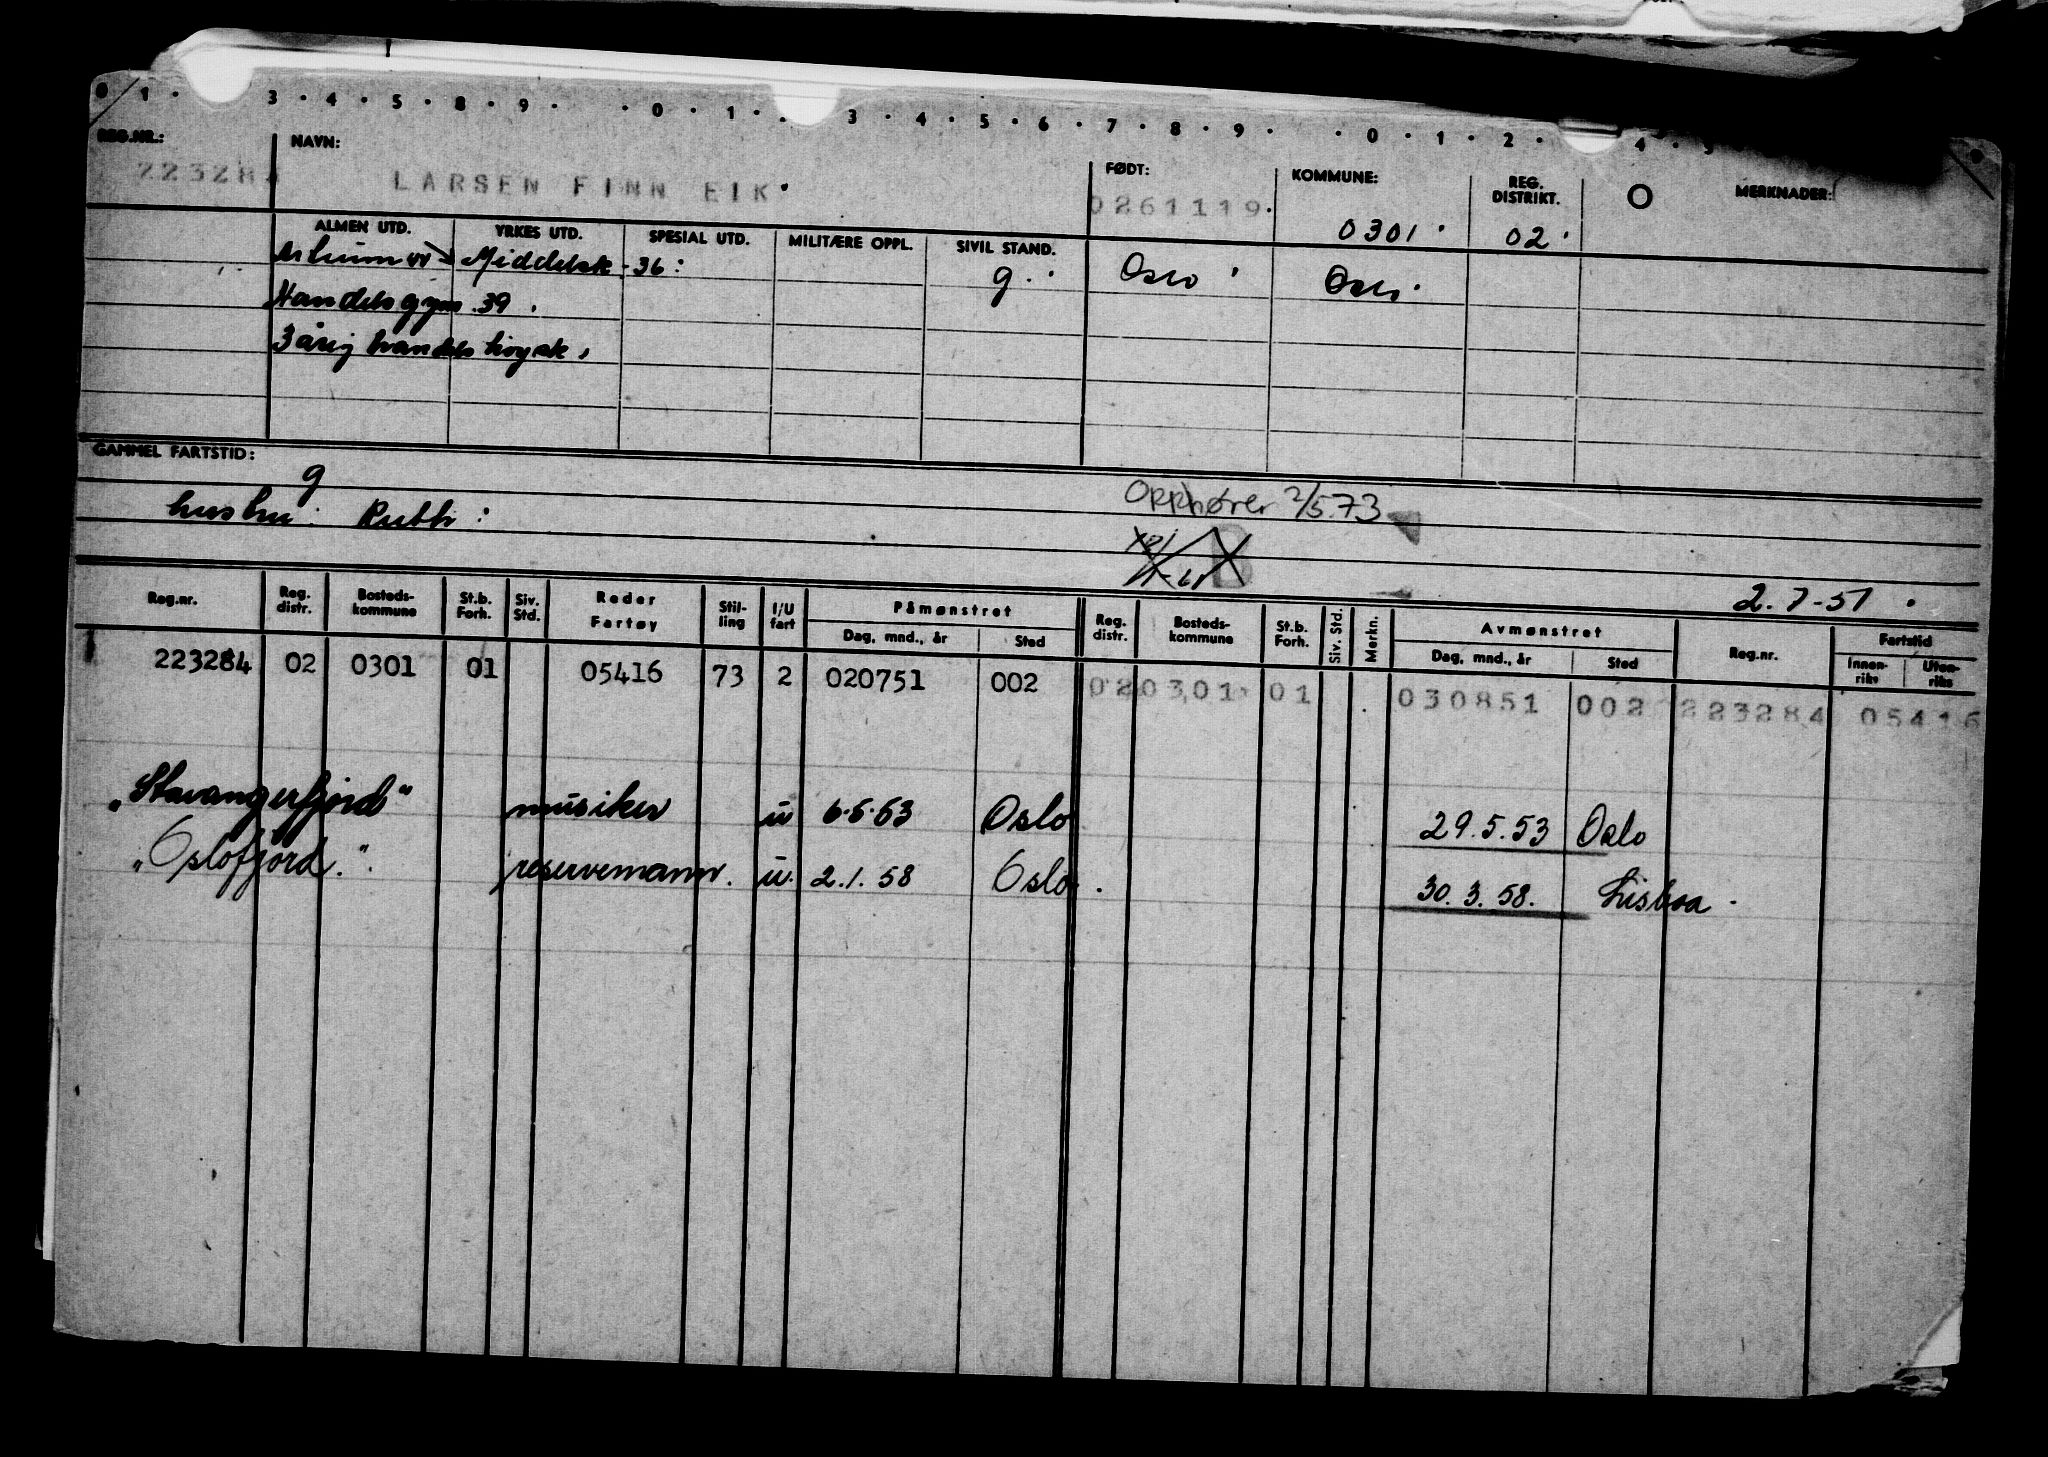 0 1 · 3 · 4 · 5 · 8 · 9 · · 0 · 1 · 3 · 4 · 5 · 6 · 7 · 8 · 9 · · 0 · 1 · 2 · 4 ·
REG.NR.: NAVN: FØDT: KOMMUNE: REG. DISTRIKT. O MERKNADER:
223284 LARSEN FINN EIK 0261119 0301 02
ALMEN UTD. YRKES UTD. SPESIAL UTD. MILITÆRE OPPL. SIVIL STAND.
Middelsk -36 g. Oslo Oslo
Handelsgym 39
3 årig handels høysk
GAMMEL FARTSTID:
g
hustru: Ruth: Opphører 2/5.73
2.7-51
Reg.nr. Reg. distr. Bosteds- kommune St.b. Forh. Siv. Std. Reder Fartøy Stil- ling I/U fart Påmønstret Dag, mnd., år Sted Reg. distr. Bosteds- kommune St.b. Forh. Siv. Std. Merkn. Avmønstret Dag, mnd., år Sted Reg.nr. Fartstid Innen- riks Uten- riks
223284 02 0301 01 05416 73 2 020751 002 02 0301 01 030851 002 223284 05416
"Stavangerfjord" musiker u 6.5.53 Oslo 29.5.53 Oslo
"Oslofjord." reservemann. u. 2.1.58 Oslo. 30.3.58. Lisboa.